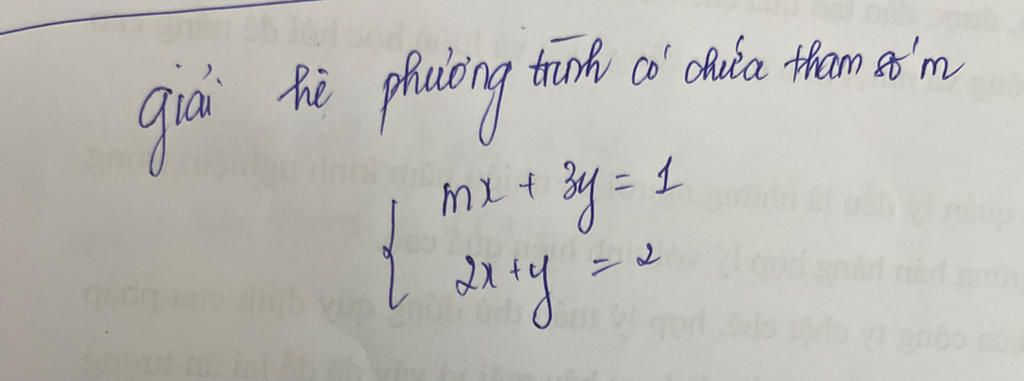 giải hệ phương trình có chứa tham số m
mx + 3y = 1
2x + y = 2